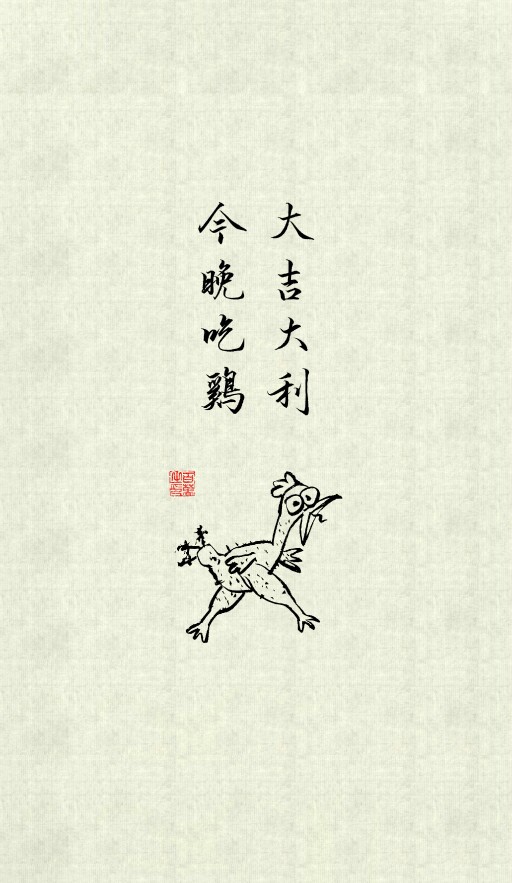 大吉大利
今晚吃鷄